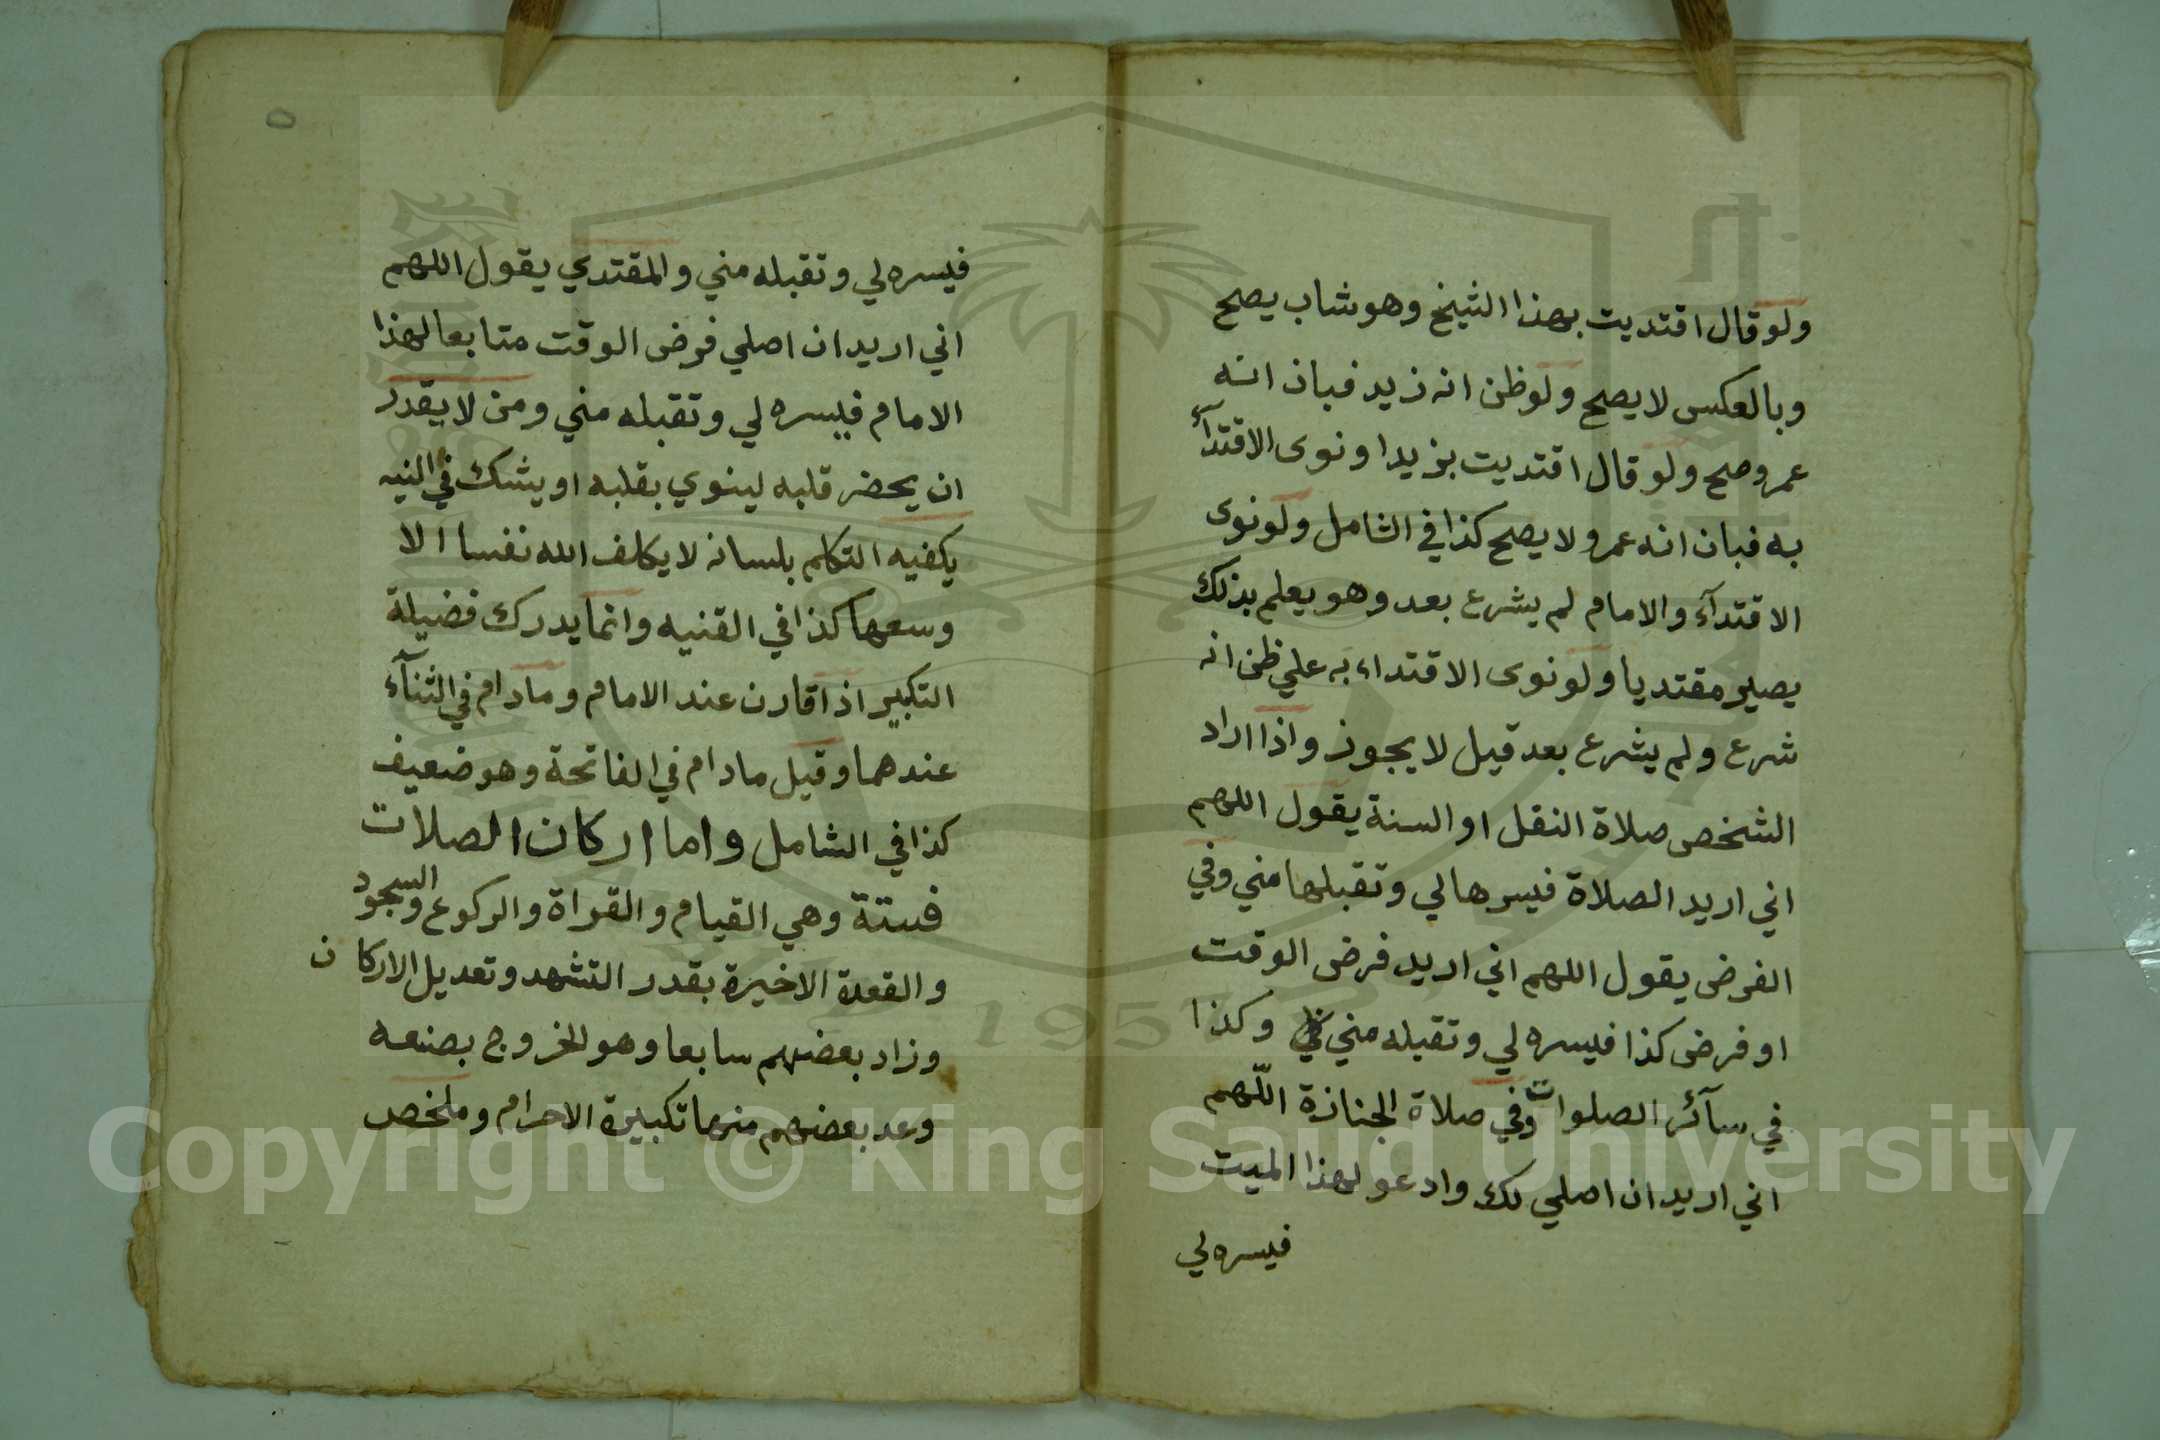 ولو قال اقتديت بهذا الشيخ وهو شاب يصح
وبالعكس لا يصح ولو ظن انه زيد فبان انه
عمرو صح ولو قال اقتديت بزيد او نوى الاقتدآء
به فبان انه عمرو لا يصح كذا في الشامل ولو نوى
الاقتدآء والامام لم يشرع بعد وهو يعلم بذلك
يصير مقتديا ولو نوى الاقتداء به علي ظن انه
شرع ولم يشرع بعد قيل لا يجوز واذا اراد
الشخص صلاة النفل او السنة يقول اللهم
اني اريد الصلاة فيسرها لي وتقبلها مني وفي
الفرض يقول اللهم اني اريد فرض الوقت
او فرض كذا فيسره لي وتقبله مني وكذا
في سآئر الصلوات وفي صلاة الجنازة اللّهم
اني اريد ان اصلي لك وادعو لهذا الميت
فيسره لي
٥
فيسره لي وتقبله مني والمقتدي يقول اللهم
اني اريد ان اصلي فرض الوقت متابعا لهذا
الامام فيسره لي وتقبله مني ومن لا يقدر
ان يحضر قلبه لينوي بقلبه او يشك في النيه
يكفيه التكلم بلسانه لا يكلف الله نفسا الا
وسعها كذا في القنيه وانما يدرك فضيلة
التكبير اذا قارن عند الامام وما دام في الثنآء
عندهما وقيل مادام في الفاتحة وهو ضعيف
كذا في الشامل واما اركان الصلات
فستة وهي القيام والقراة والركوع والسجود
والقعدة الاخيرة بقدر التشهد وتعديل الاركان
وزاد بعضهم سابعا وهو الخروج بصنعه
وعد بعضهم منها تكبيرة الاحرام وملخص
1957
Copyright © King Saud University